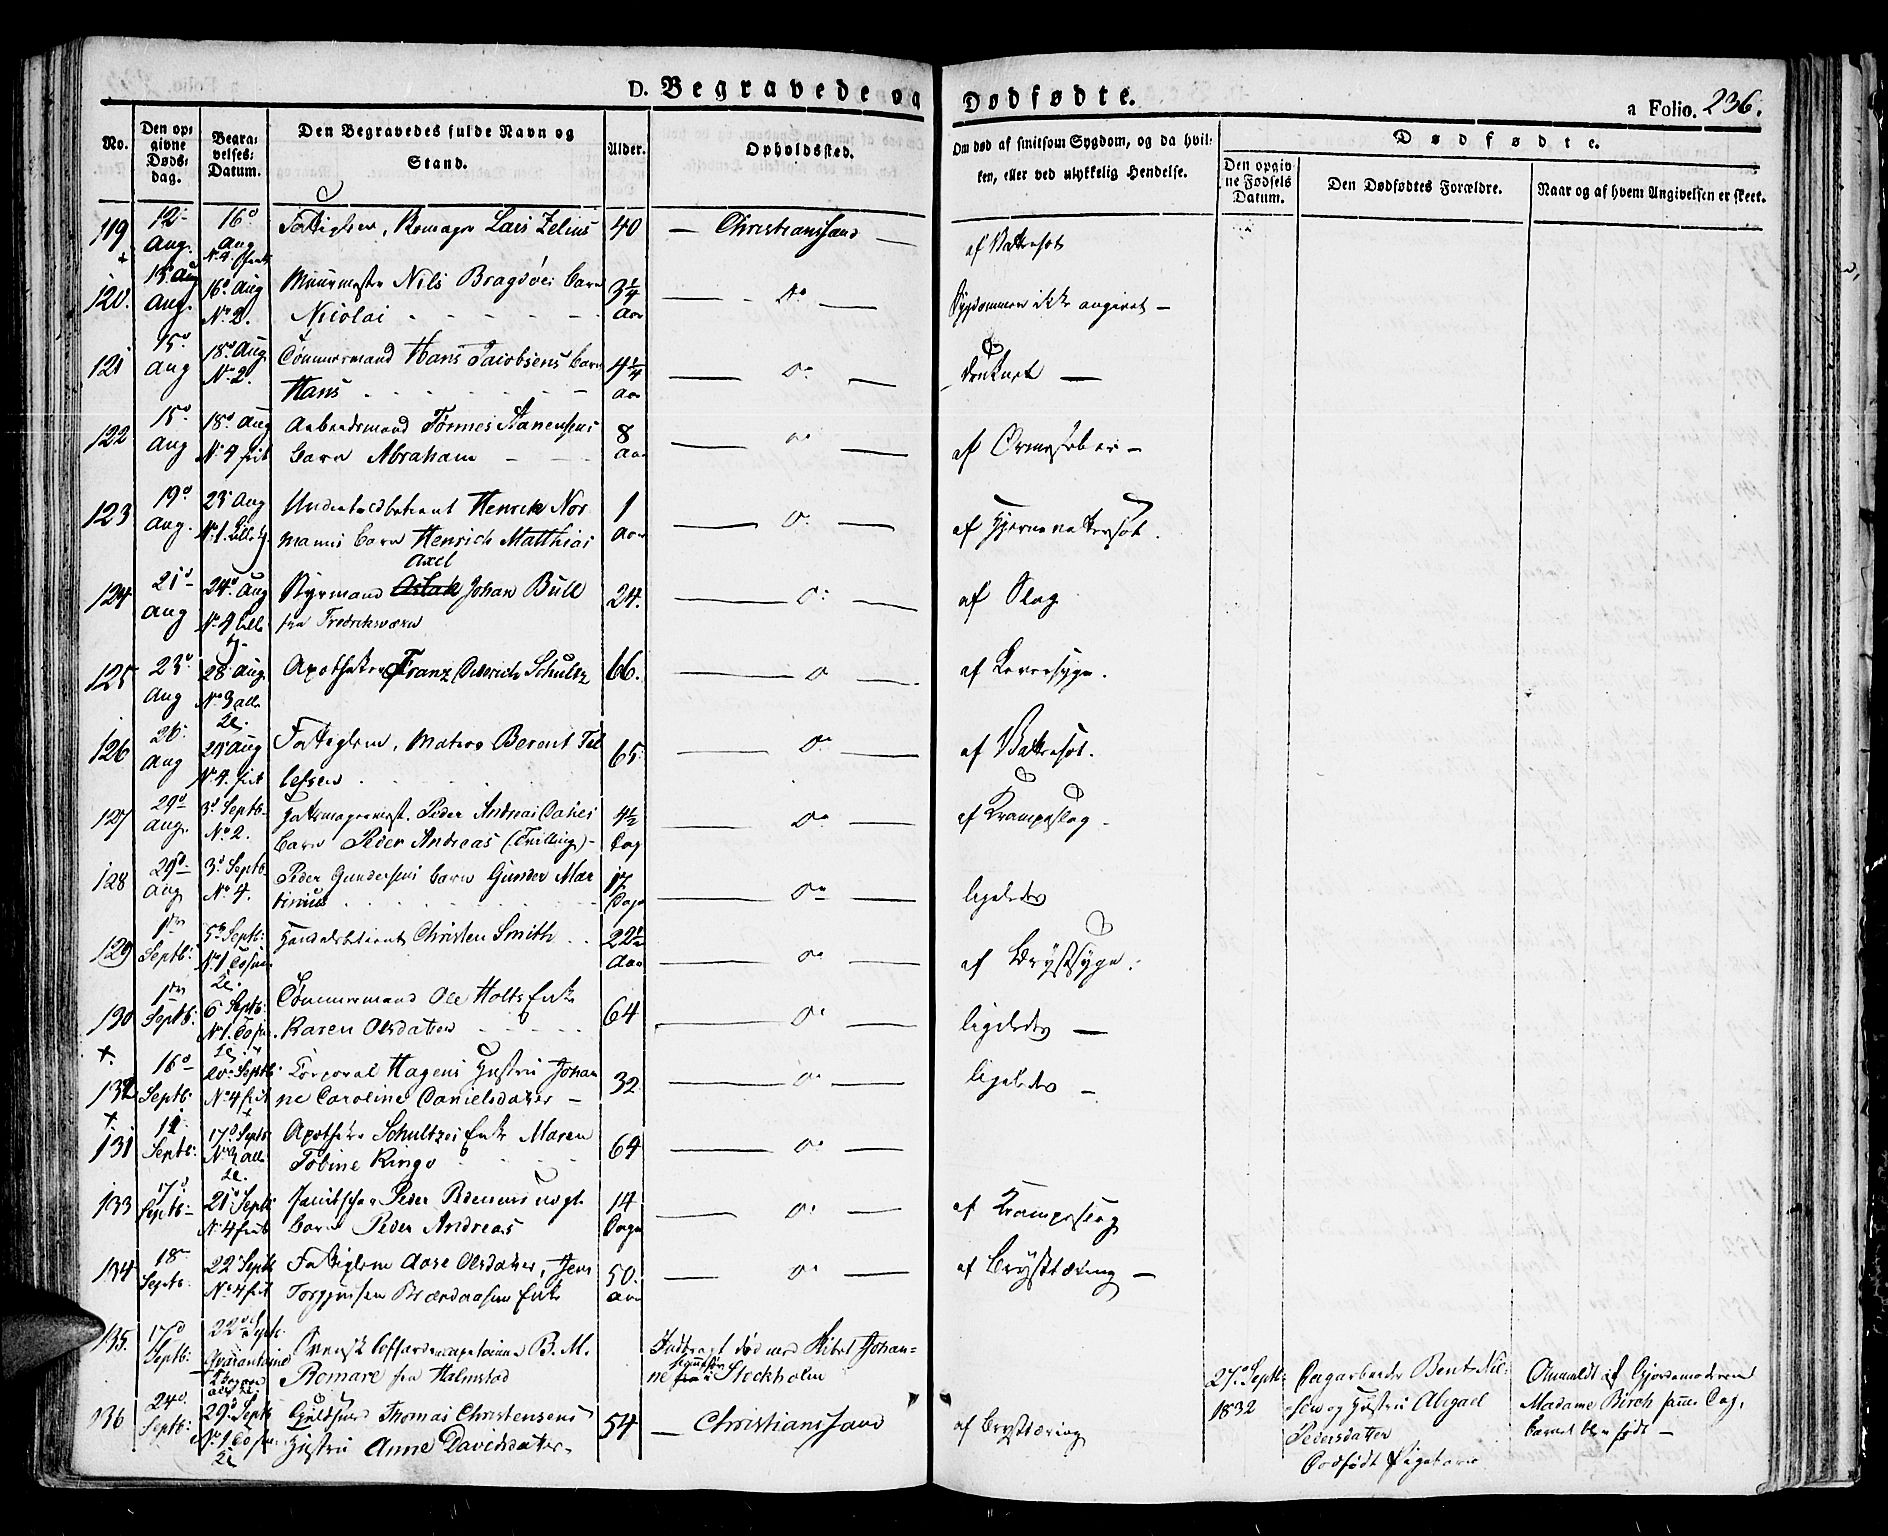 D. Begravede og Dødfødte.
a Folio. 236.
No.
Den opgivne Døds-dag.
Begravelses-Datum.
Den Begravedes fulde Navn og Stand.
Alder.
Opholdssted.
Om død af smitsom Sygdom, og da hvilken, eller ved ulykkelig Hendelse.
Dødfødte.
Den opgivne Fødsels Datum.
Den Dødfødtes Forældre.
Naar og af hvem Angivelsen er skeet.
119 12 Aug. 16d Aug Fattiglem, Lars Zelius 40 — Christianssand — af Vattersot
120. 15 Aug. 16d Aug No 2. Muurmester Nils Bragdøes Barn
Nicolai 3¼ Aar — Do — Sygdommen ikke angivet —
121 15d Aug 18d Aug No 2. Tømmermand Hans Jacobsens Barn
Hans 4¼ Aar — Do — druknet —
122 15d Aug 18d Aug No 4 frit Arbeidsmand Tønnes Stanensens
Barn Abraham 8 Aar — Do — af Ormefeber —
123 19d Aug. 23 Aug No 1. Undertoldbetient Henrik Nor
manns Barn Henrich Matthias 1 Aar — Do — af Hjernevattersot.
124 21d Aug 24d Aug Styrmand Axel Johan Bull
fra Fredriksværn 24. — Do — af Slag
125 23d Aug 28 Aug No 3 Apotheker Franz Diderich Schultz 66. — Do — af Leversyge.
126 26 Aug 29 Aug No 4. frit Fattiglem, Matros Berent Tel
lefsen 65 — Do — af Vattersot.
127 29d Aug. 3d Septb. No 2. Hattemagermest. Peder Andreas Dahls
Barn Peder Andreas (Tvilling) — 4½ Dag — Do — af Krampeslag —
128 29d Aug 3d Septb. No 4. Peder Gundersens Barn Gunder Mar
tinius 17 Dage — Do — ligeledes
129 1ste Septb: 5te Septb: No 1 Handelsbetient Christen Smith 22½ Aar — Do — af Brystsyge.
130 1ste Septb: 6 Septb: No 1. Tømmermand Ole Holts Enke
Karen Olsdatter 64 — Do — ligeledes —
132 16d Septb: 20 Septb: No 4 frit Corporal Hagens Hustru Johan
ne Caroline Danielsdatter — 32 — Do — ligeledes —
131 Septb: 17d Septb: No 3 Apotheker Schultzes Enke Maren
Tobine Ringe 64 — Do —
133 17d Septb: 21d Septb: No 4 frit Peder Pedersens uægt
Barn Peder Andreas 14 Dage — Do — af Krampeslag
134 18 Septb. 22 Septb No 4 frit Fattiglem Aase Olsdatter, Jens
Torgjusen Brændaasen Enke 50. Aar — Do — af Brysttæring —
135. 17d Septb: 22d Septb: Quarantaine Svensk Coffardiecapitaine B. M.
Romare fra Halmstad Indbragt død med Skibet Johan-
ne fra Stockholm
136 24d Septb: 29d Septb No 1 Guldsmed Thomas Christensens
Hustru Anne Davidsdatter 54 — Christianssand af Brysttæring
27d Septb: 1832 Dagarbeider Bent Niel-
sen og Hustru Abigael
Pedersdatter
Dødfødt Pigebarn
Anmeldt af Gjordemoderen
Madame Birch samme Dag,
Barnet blev født —